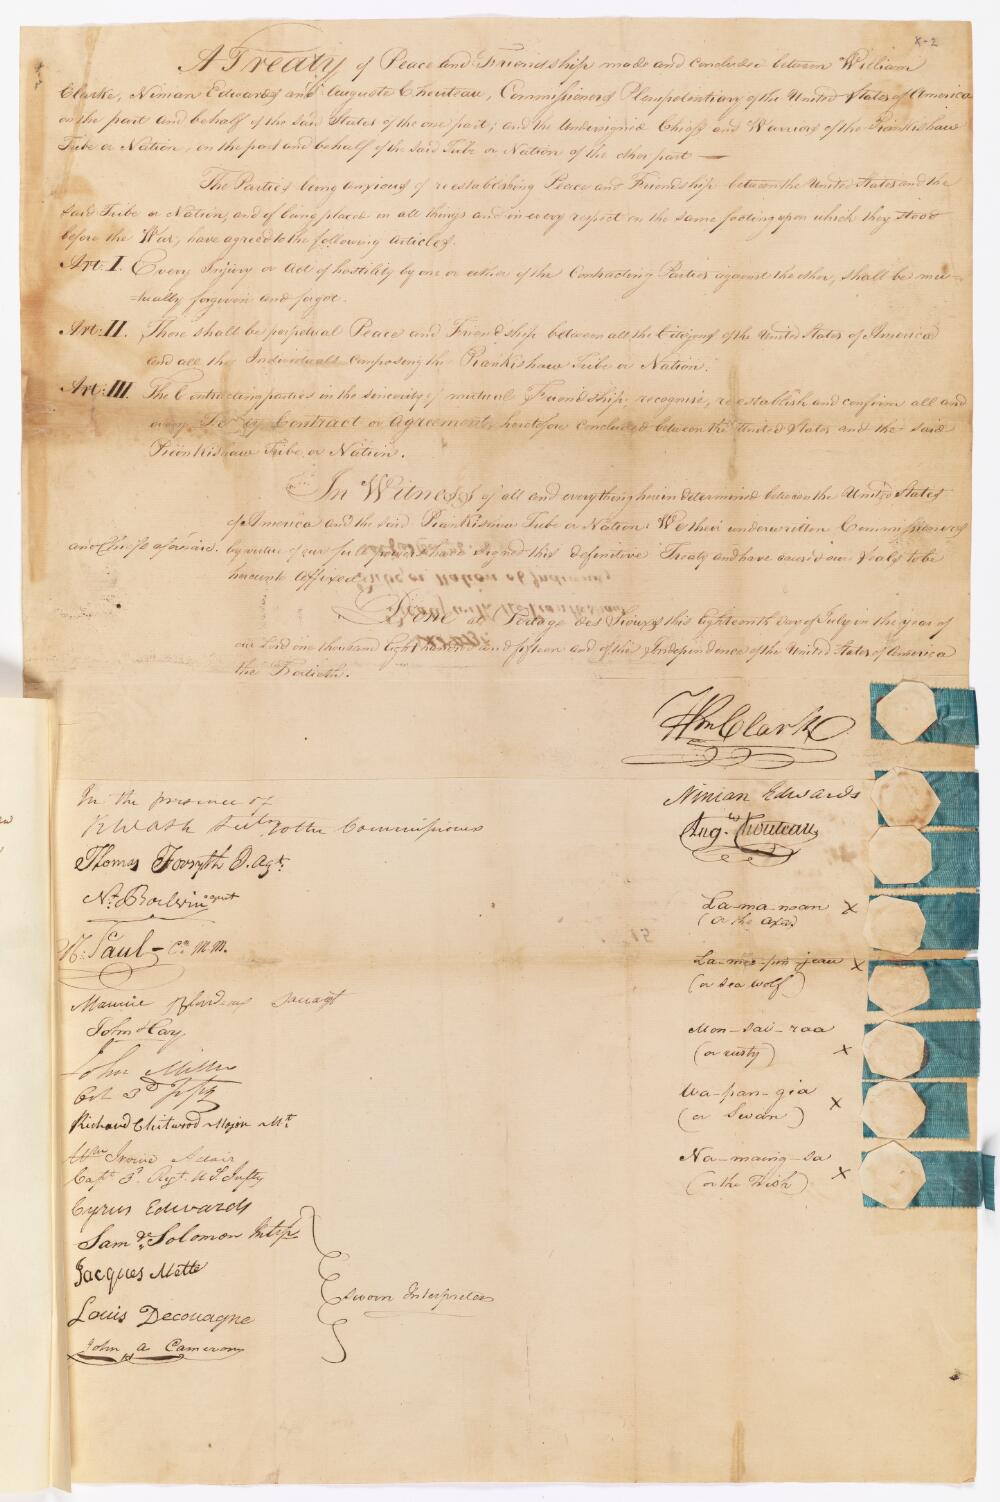 X-2
A Treaty of Peace and Friendship made and concluded between William
Clarke, Ninian Edwards and Auguste Chouteau, Commissioners Plenipotentiary of the United States of America
on the part and behalf of the said States of the one part; and the Undersigned Chiefs and Warriors of the Piankishaw
Tribe or Nation, on the part and behalf of the said Tribe or Nation of the other part —
The Parties being anxious of re establishing Peace and Friendship between the United States and the
said Tribe or Nation, and of being placed in all things and in every respect on the same footing upon which they stood
before the War, have agreed to the following Articles.
Art: I. Every Injury or Act of hostility by one or either of the Contracting Parties against the other, shall be mu-
-tually forgiven and forgot.
Art: II. There shall be perpetual Peace and Friendship between all the Citizens of the United States of America
and all the Individuals composing the Piankishaw Tribe or Nation.
Art: III. The Contracting parties in the sincerity of mutual Friendship, recognise, re establish and confirm all and
every Treaty Contract or Agreement, heretofore concluded between the United States and the said
Piankishaw Tribe or Nation.
In Witness of all and everything herein determined between the United States
of America and the said Piankishaw Tribe or Nation: We their underwritten Commissioners
and Chiefs aforesaid. by virtue of our full powers have signed this definitive Treaty and have caused our Seals to be
hereunto affixed.
Done at Portage des Sioux this Eighteenth day of July in the year of
our Lord one thousand Eight hundred and fifteen and of the Independence of the United States of America
the Fortieth.
Wm Clark
Ninian Edwards
Aug.te Chouteau
La-ma-noan X
(or the axe)
La-mee-pre-jeau X
(or sea wolf)
Mon-sai-raa
(or rusty) X
Wa-pan-gia
(or Swan) X
Na-maing-sa
(or the Fish) X
In the presence of
R Wash Secty to the Commissions
Thomas Forsyth I. Agt.
N. Boilvin agent
R. Paul C.n M.M.
Maurice Blondeau
John Hay
John Miller
Col 3d Infty
Richard Chitwood Major Mt
Wm Irvine Adair
Capt 3d Regt. U S Infty
Cyrus Edwards
Saml Solomon Intrp
Jacques Mette
Louis Decouagne
John A Cameron
Sworn Interpreters